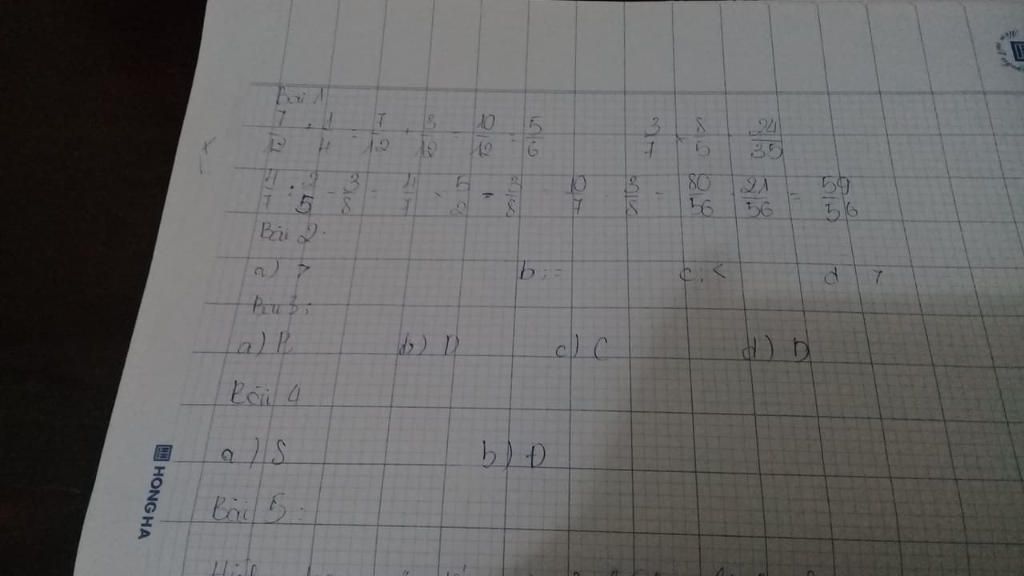 Bài 1
7/12 + 1/4 = 7/12 + 3/12 = 10/12 = 5/6 3/7 × 8/5 = 24/35
4/7 : 2/5 - 3/8 = 4/7 × 5/2 - 3/8 = 10/7 - 3/8 = 80/56 - 21/56 = 59/56
Bài 2:
a) > b. = c. < d >
Bài 3:
a) B b) D c) C d) D
Bài 4
a) S b) D
Bài 5:
HONG HA